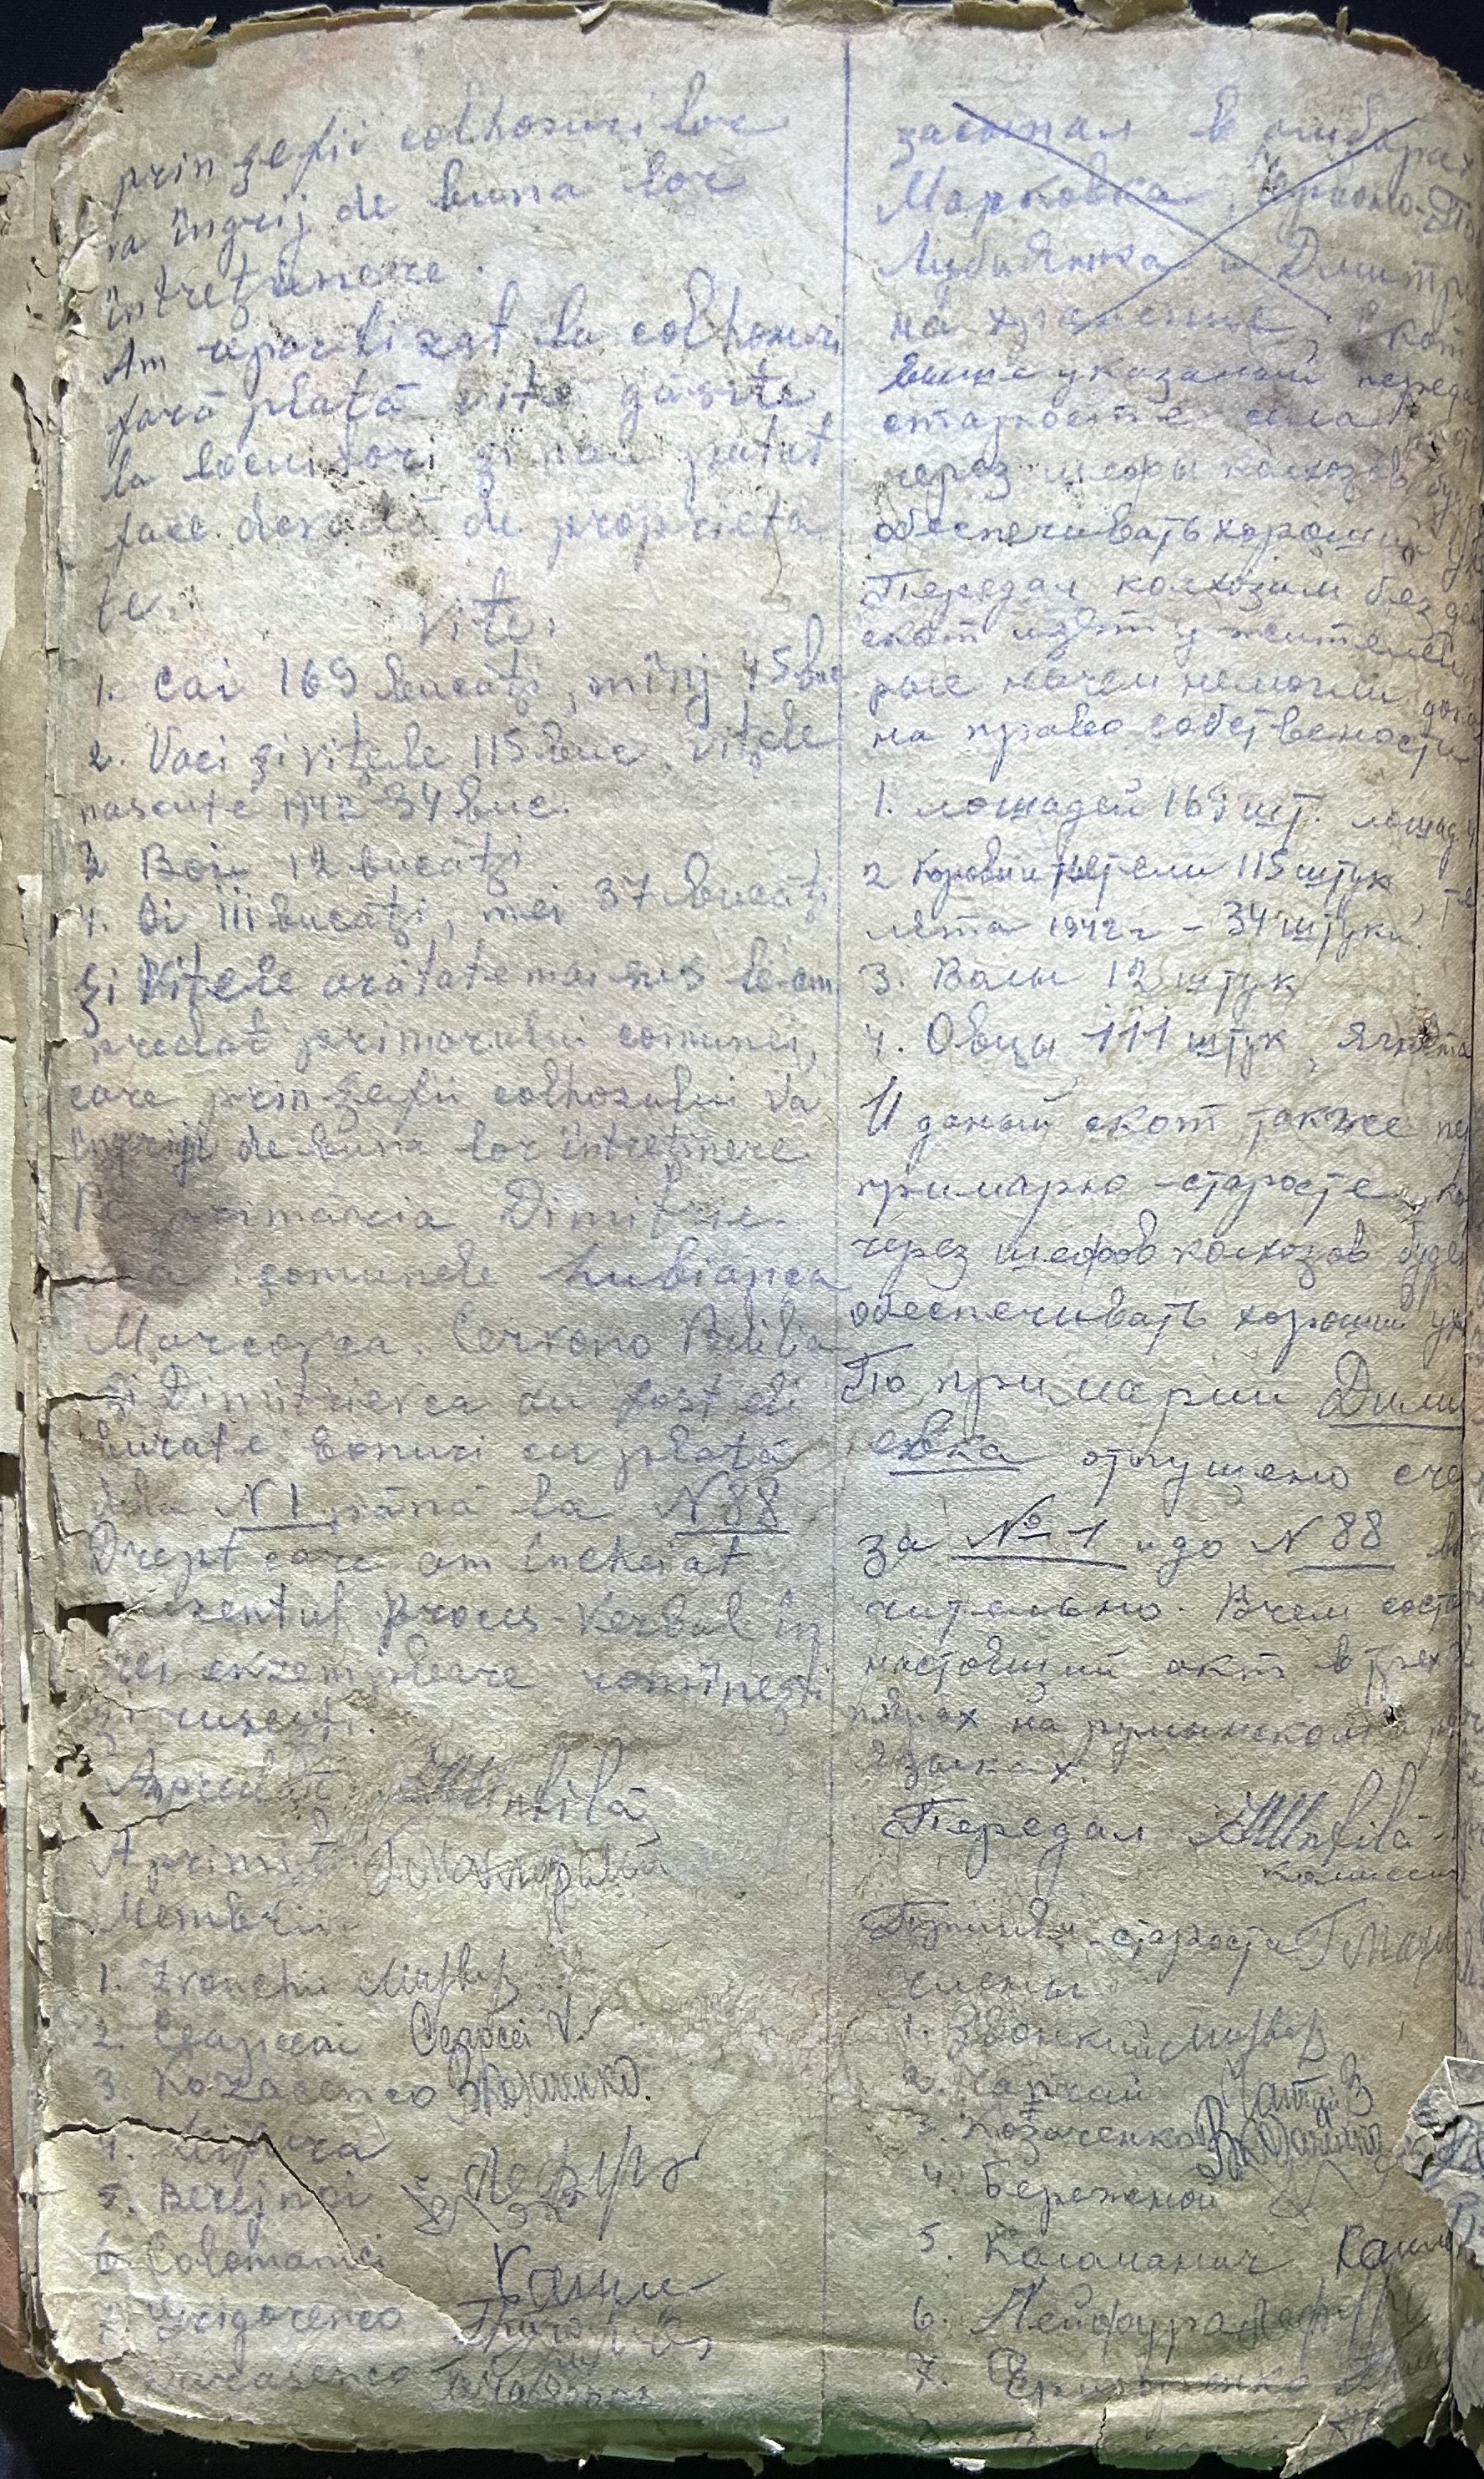 prin șefii colhosurilor
va îngriji de buna lor
întreținere.
Am repartizat la colhosuri
fară plată vite găsite
la locuitori și nau putut
face dovadă de proprieta
te.
Vite:
1. Cai 169 bucăți, minj 45 buc
2. Vaci și vitele 115 buc, vițele
nascute 1942 34 buc.
3 Boi 12 bucăți
4. Oi 111 bucăți, mei 37 bucăți
și Vitele arătate mai sus le-am
predat primarului comunei,
care prin șefii colhosului va
îngriji de buna lor întreținere
Pe primăria Dimitrie
comunele Lubianca
Marcovca, Cervono Bilca
și Dimitrievca au fost eli
burate bonuri cu plată
dela N 1 până la N 88
Drept care am încheiat
prezentul proces-verbal în
trei exzemplare romînești
și rusești.
A predat
A primit
Membrii
1. Zvonchii
2. Ceapcai Ceapcei V.
3. Kozacenco В Козаченко.
4.
5. Berejnoi
6. Colomanici
7. Grigorenco
засыпал в амбарах
Марковка, Червоно-
Лубьянка и Дмитр
на хранение, кот
выше указаный переда
старосте села
через шефы колхозов буд
обеспечивать хороший ух
Передал колхозам без де
скот изят у жителей
рые нечем немогли дока
на право собствености
1. лошадей 169 шт. лошад
2 Коровы и телели 115 штук, те
лета 1942 г - 34 штуки.
3. Валы 12 штук
4. Овцы 111 штук, ягнята
И даный скот также пе
примарю - старосте, ко
через шефов колхозов буде
обеспечивать хороший ух
По примарии Дими
евка отпущено сче
за № 1 и до N 88 в
чительно. В чем соста
настоящий акт в трех эк
плярах на румынском и ру
языках.
Передал
Комисси
Принял - староста
члены
1. Звонкий
2. Чапчай Чапчай В
3. Козаченко В Козаченко
4. Бережной
5. Каламанич
6. Лейфура
7. Григоренко